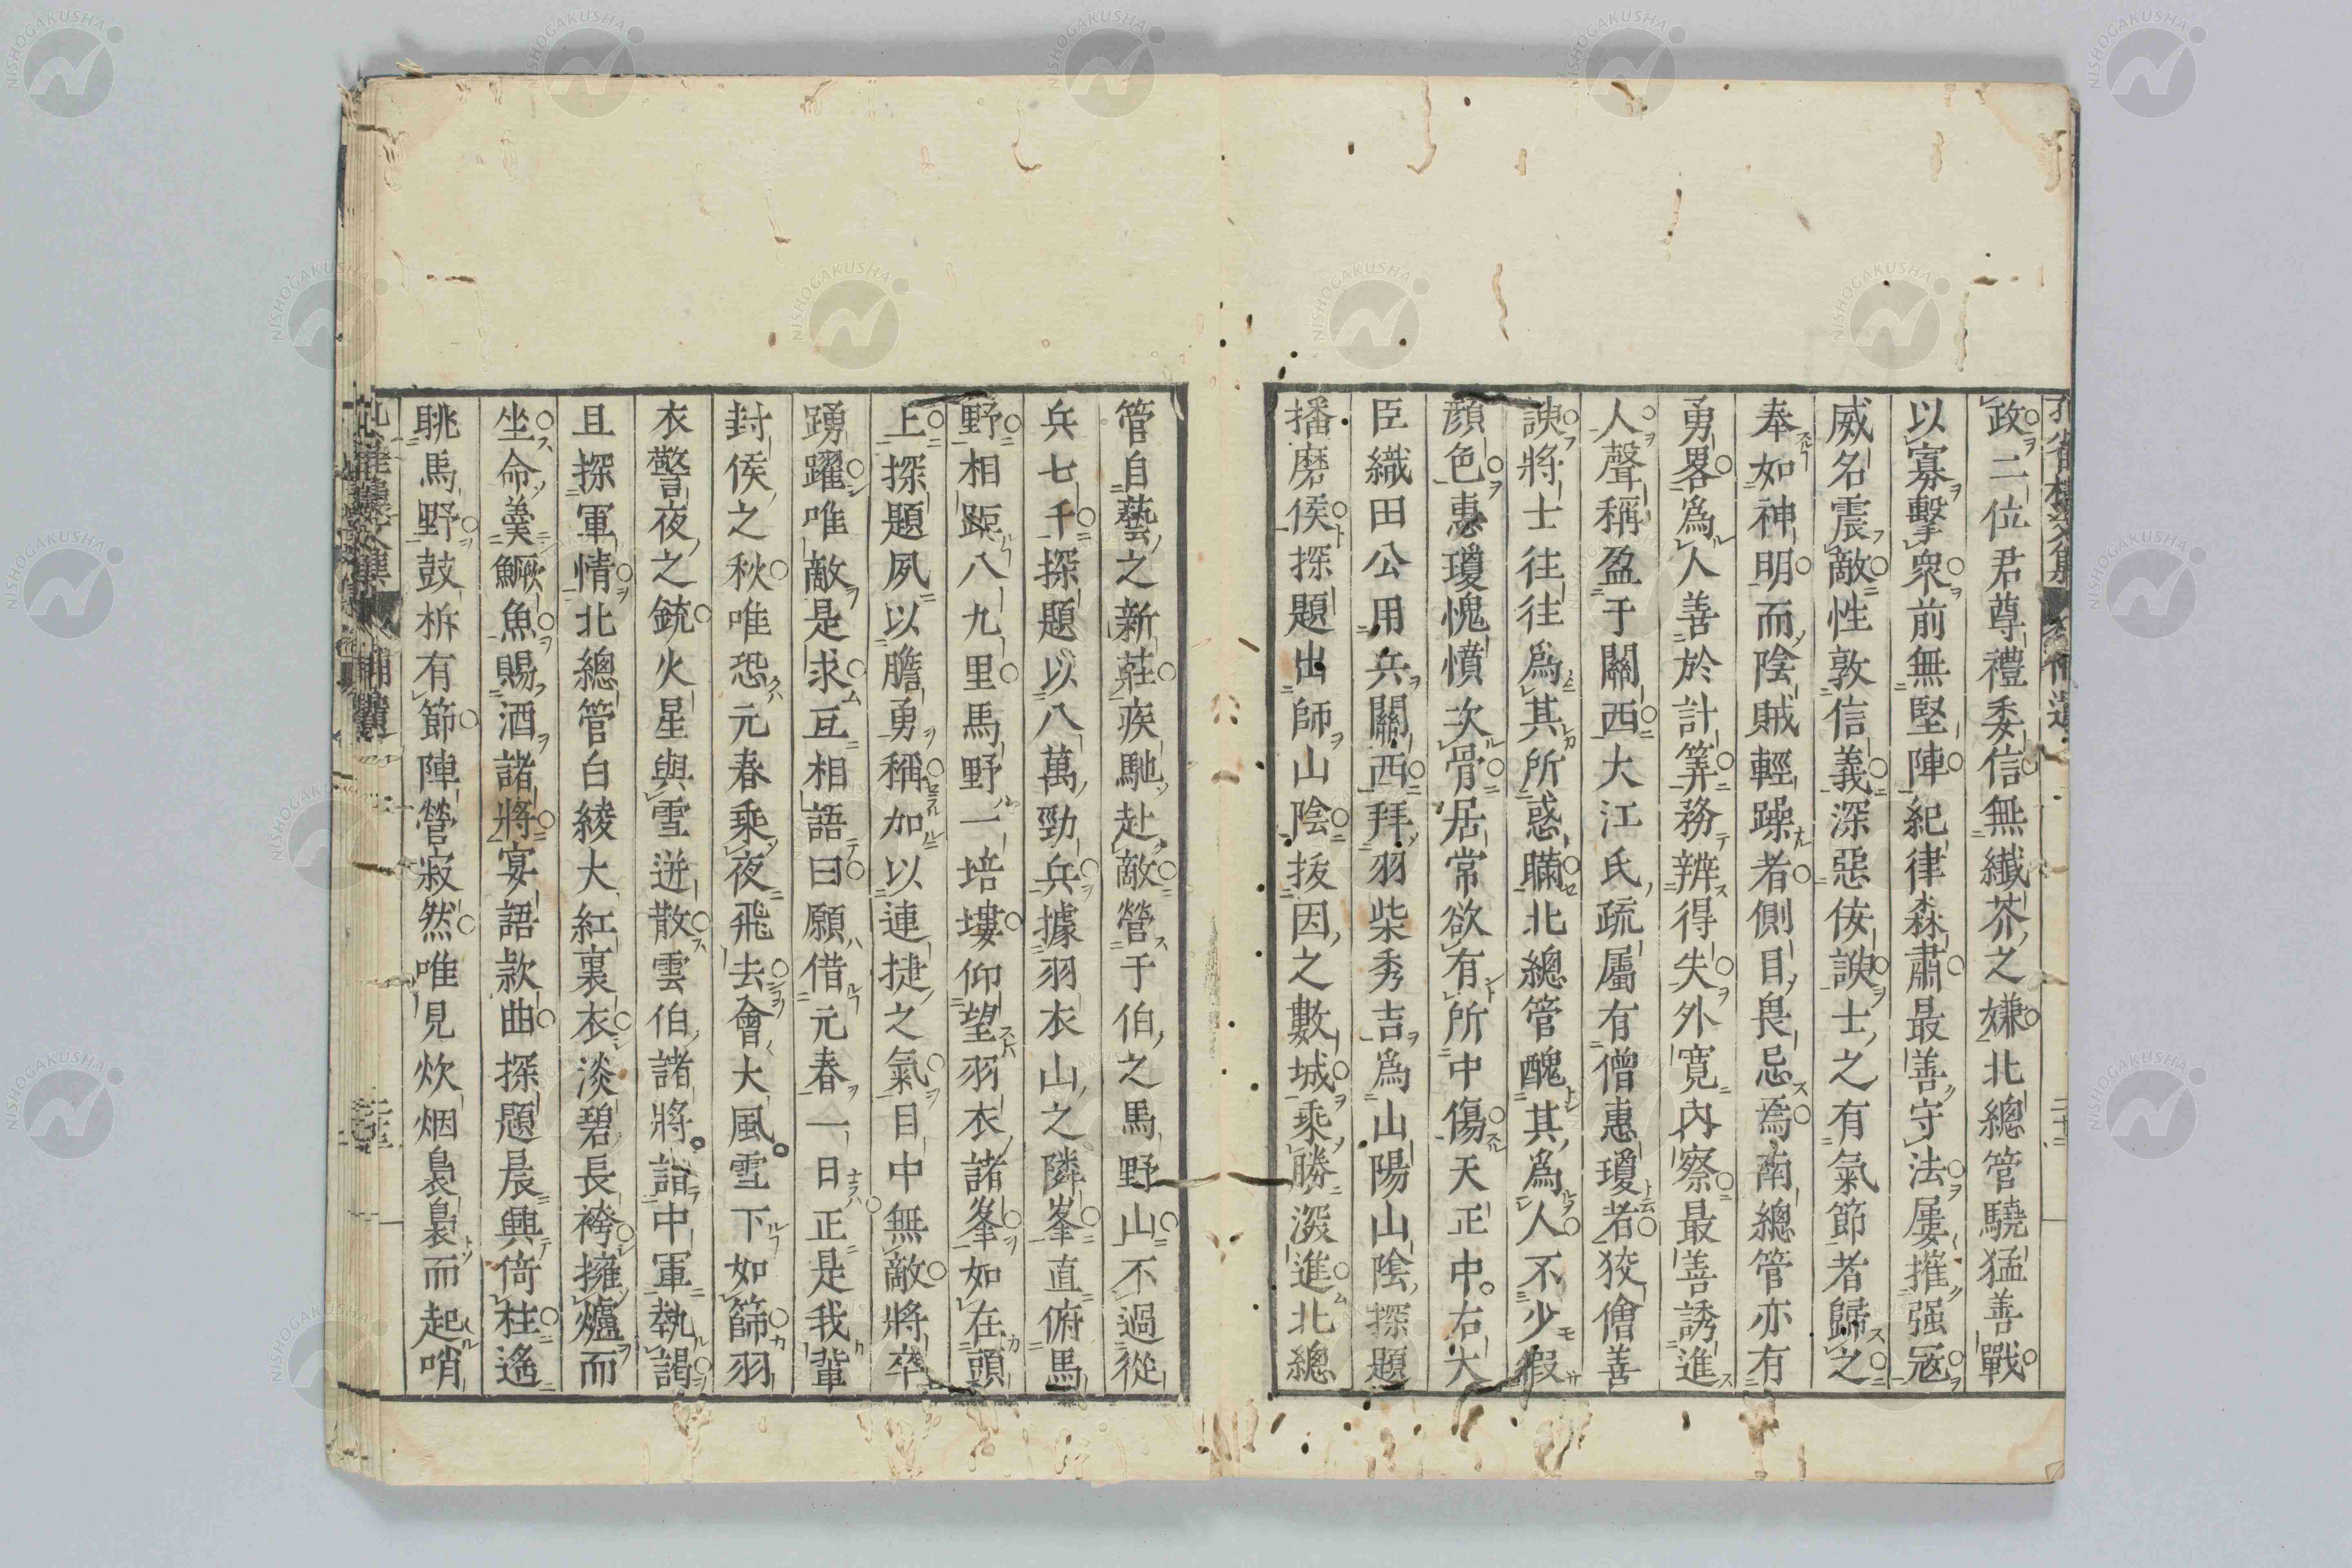 政二位君尊禮委信無纖芥之嫌北總管驍猛善戰
以寡擊衆前無堅陣紀律森肅最善守法屢摧强冦
威名震敵性敦信義深惡侫諛士之有氣節者歸之
奉如神明而陰賊輕躁者側目畏忌焉南總管亦有
勇畧爲人善於計筭務辨得失外寛內察最善誘進
人聲稱盈于關西大江氏疏屬有僧惠瓊者狡儈善
諛將士往往爲其所惑矙北總管醜其爲人不少假
顏色惠瓊愧憤次骨居常欲有所中傷天正中右大
臣織田公用兵關西拜羽柴秀吉爲山陽山陰探題
播磨侯探題出師山陰拔因之數城乘勝深進北總
管自藝之新莊疾馳赴敵營于伯之馬野山不過從
兵七千探題以八萬勁兵據羽衣山之隣峯直俯馬
野相距八九里馬野一培塿仰望羽衣諸峯如在頭
上探題夙以膽勇稱加以連捷之氣目中無敵將卒
踴躍唯敵是求互相語曰願借元春一日正是我輩
封侯之秋唯恐元春乘夜飛去會大風雪下如篩羽
衣警夜之銃火星與雪迸散雲伯諸將詣中軍執謁
且探軍情北總管白綾大紅裏衣淡碧長袴擁爐而
坐命羹鱖魚賜酒諸將宴語款曲探題晨興倚柱遙
眺馬野鼓柝有節陣營寂然唯見炊烟裊裊而起哨